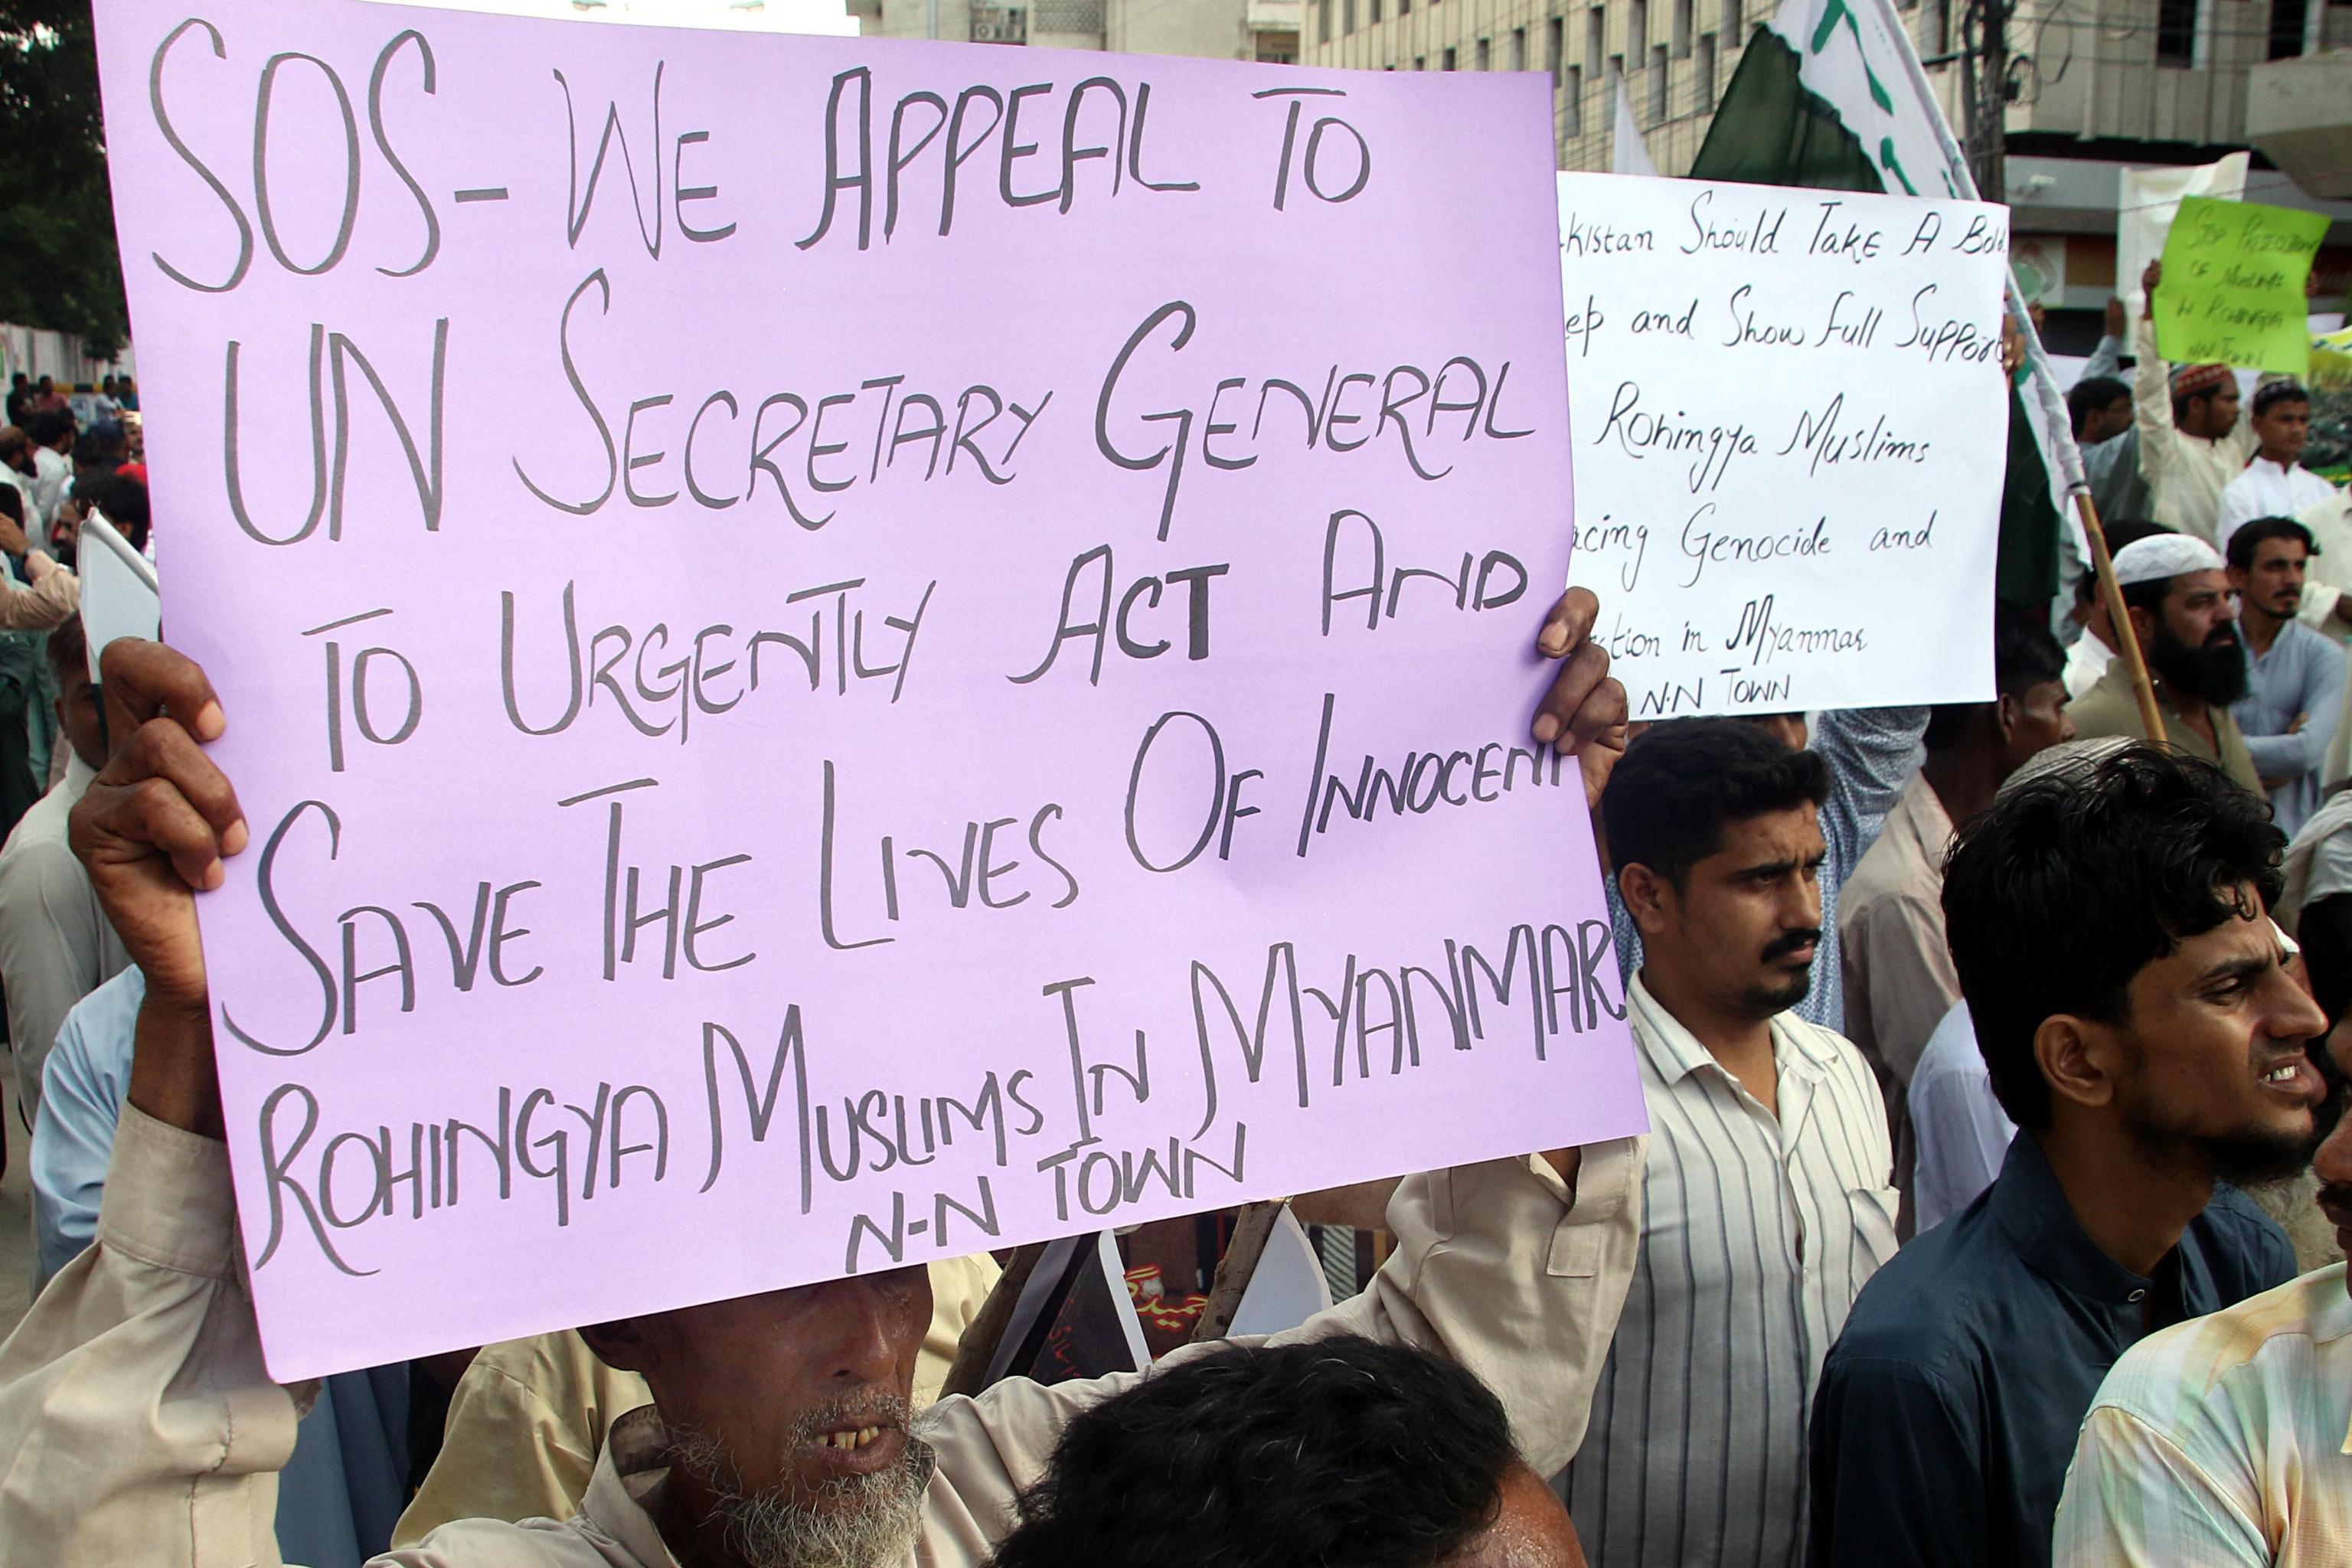 SOS - WE APPEAL TO
UN SECRETARY GENERAL
TO URGENTLY ACT AND
SAVE THE LIVES OF INNOCENT
ROHINGYA MUSLIMS IN MYANMAR
N-N TOWN
kistan Should Take A Bold
ep and Show Full Support
Rohingya Muslims
acing Genocide and
ction in Myanmar
N.N TOWN
STOP
OF MUSLIMS
IN ROHINGYA
N-N TOWN